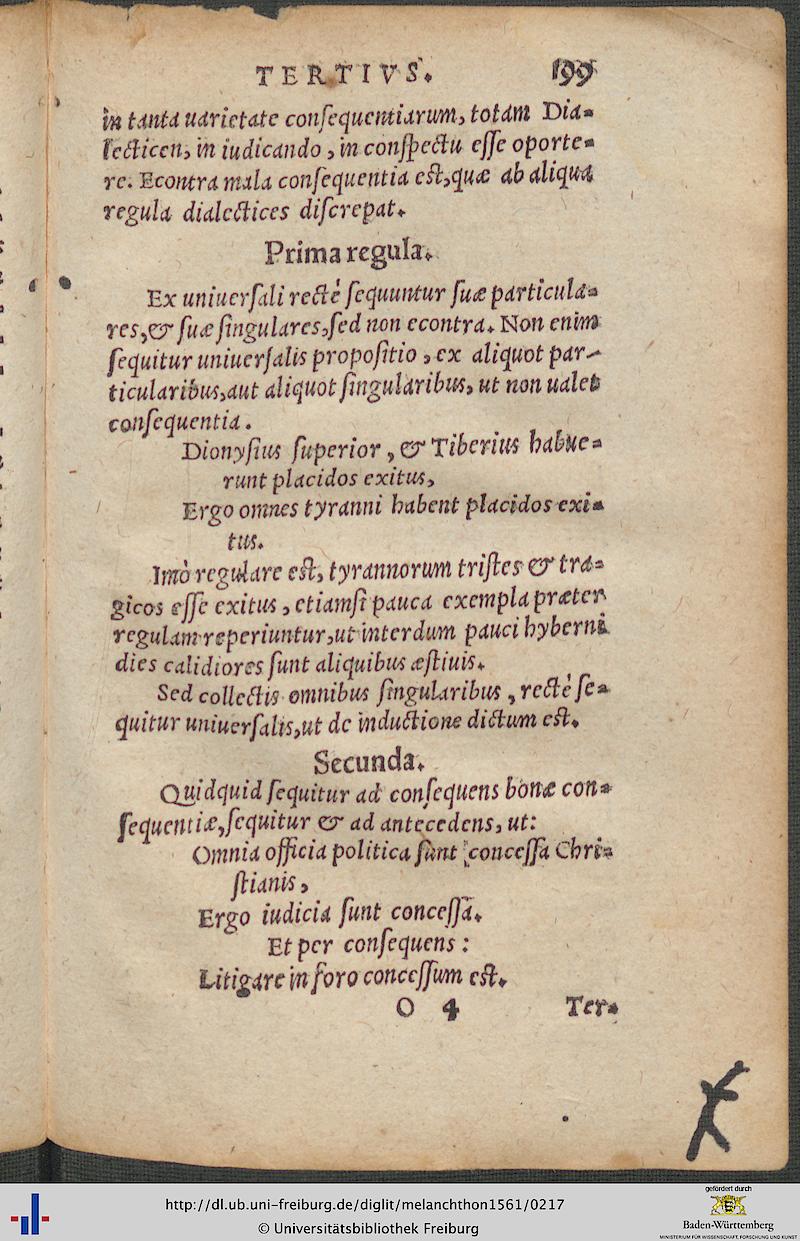 TERTIVS. 199
in tanta uarietate conſequentiarum, totam Dia-
lecticen, in iudicando, in conſpectu eſſe oporte-
re. Econtra mala conſequentia est, quæ ab aliqua
regula dialectices diſcrepat.
Prima regula.
Ex uniuerſali rectè ſequuntur ſuæ particula-
res, & ſuæ ſingulares, ſed non econtra. Non enim
ſequitur uniuerſalis propoſitio, ex aliquot par-
ticularibus, aut aliquot ſingularibus, ut non ualet
conſequentia.
Dionyſius ſuperior, & Tiberius habue-
runt placidos exitus,
Ergo omnes tyranni habent placidos exi-
tus.
Imò regulare est, tyrannorum triſtes & tra-
gicos eſſe exitus, etiamſi pauca exempla præter
regulam reperiuntur, ut interdum pauci hyberni
dies calidiores ſunt aliquibus æſtiuis.
Sed collectis omnibus ſingularibus, rectè ſe-
quitur uniuerſalis, ut de inductione dictum est.
Secunda.
Quidquid ſequitur ad conſequens bonæ con-
ſequentiæ, ſequitur & ad antecedens, ut:
Omnia officia politica ſunt conceſſa Chri-
ſtianis,
Ergo iudicia ſunt conceſſa.
Et per conſequens:
Litigare in foro conceſſum est.
O 4 Ter-
http://dl.ub.uni-freiburg.de/diglit/melanchthon1561/0217
© Universitätsbibliothek Freiburg
gefördert durch
Baden-Württemberg
MINISTERIUM FÜR WISSENSCHAFT, FORSCHUNG UND KUNST